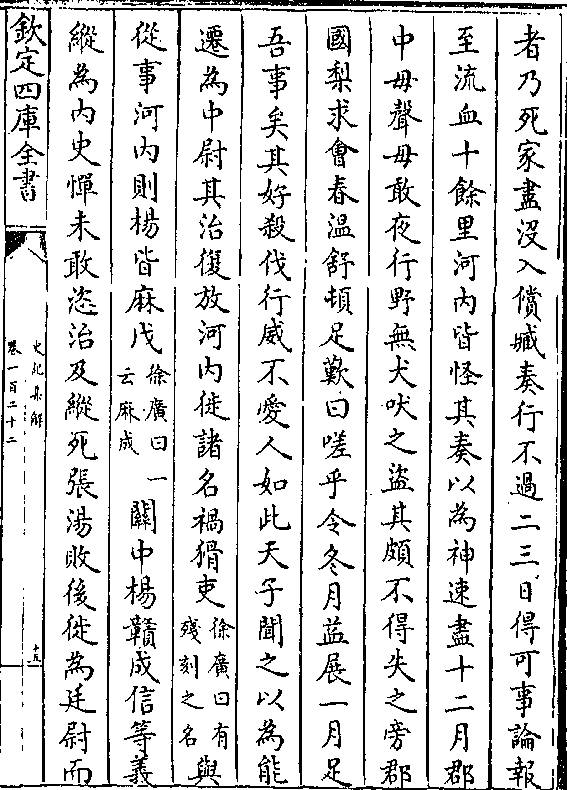 者乃死家盡没入償臧奏行不過二三日得可事論報
至流血十餘里河内皆怪其奏以為神速盡十二月郡
中毋聲毋敢夜行野無犬吠之盗其頗不得失之旁郡
國梨求會春温舒頓足歎曰嗟乎令冬月益展一月足
吾事矣其好殺伐行威不愛人如此天子聞之以為能
遷為中尉其治復放河内徙諸名禍猾吏徐廣曰有殘刻之名與
從事河内則楊皆麻戊徐廣曰一云麻成關中楊贛成信等義
縱為内史憚未敢恣治及縱死張湯敗後徙為廷尉而
欽定四庫全書
史記集解
卷一百二十二
十五